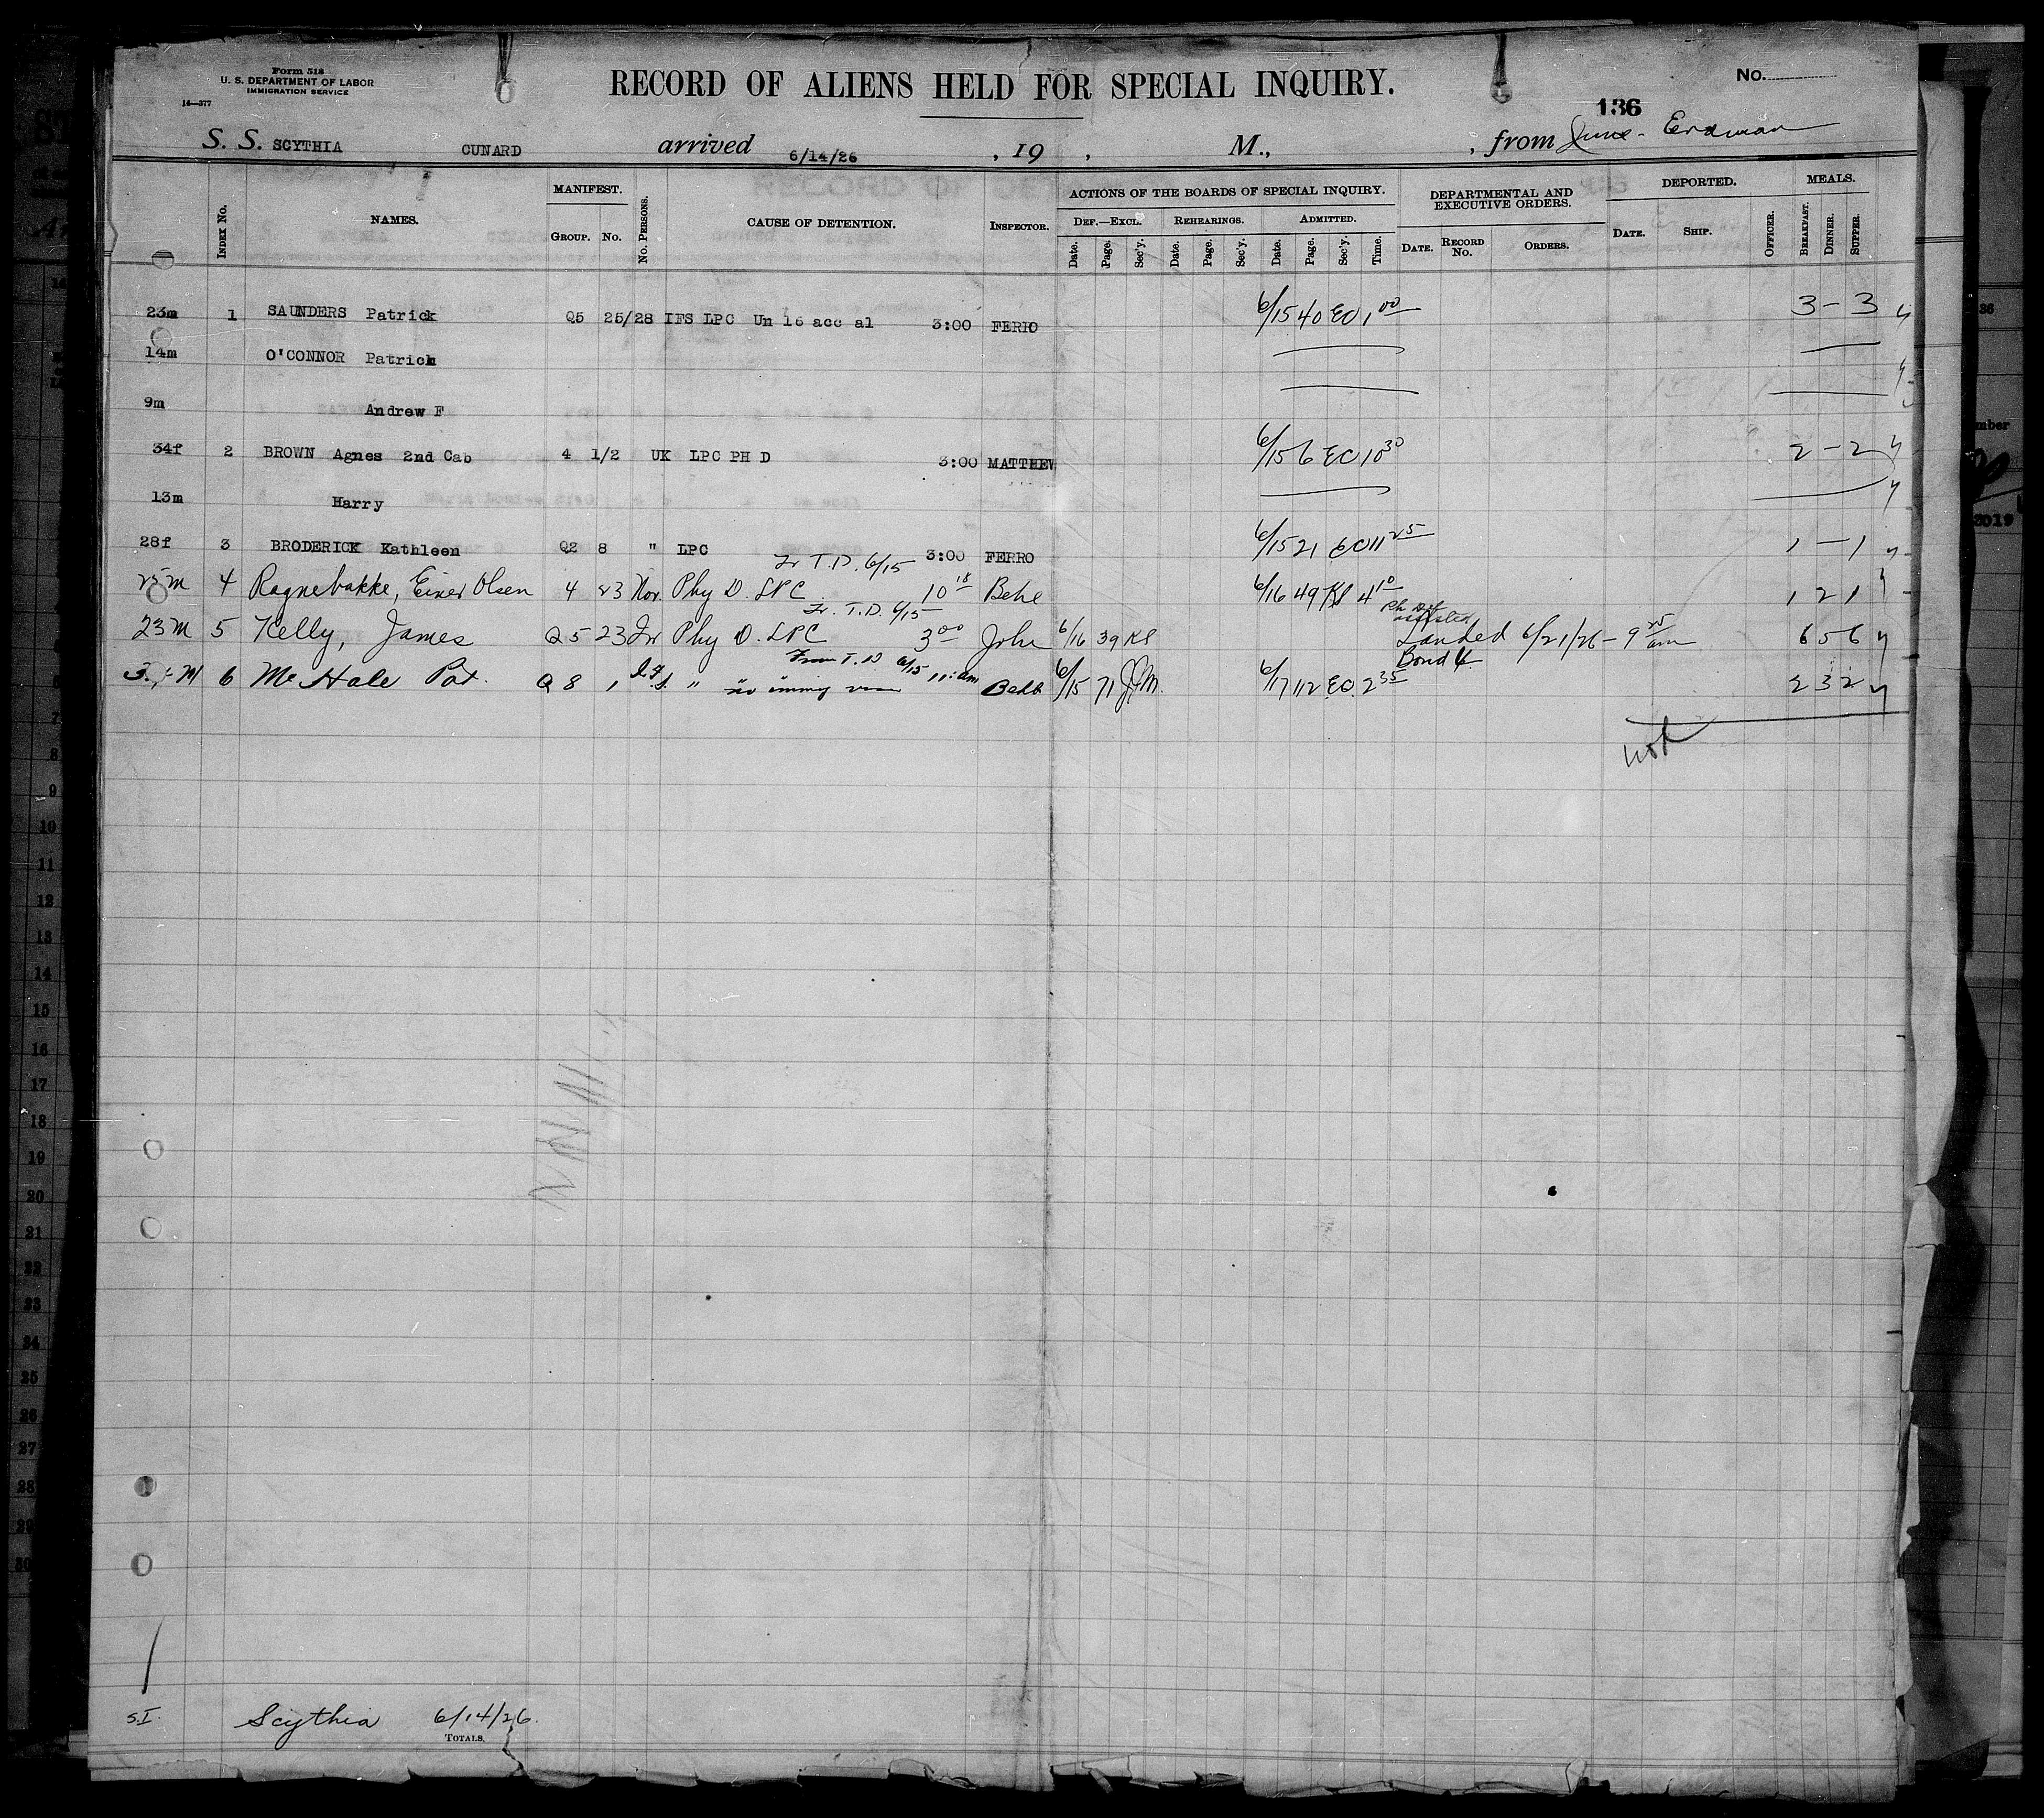 Form 518
U. S. DEPARTMENT OF LABOR
IMMIGRATION SERVICE
14—377
RECORD OF ALIENS HELD FOR SPECIAL INQUIRY.
No.
136
S. S. SCYTHIA CUNARD arrived 6/14/26 , 19 , M., , from June - Erdman
INDEX No. NAMES. MANIFEST. GROUP. No. No. PERSONS. CAUSE OF DETENTION. INSPECTOR. ACTIONS OF THE BOARDS OF SPECIAL INQUIRY. DEF.—EXCL. Date. Page. Sec'y. REHEARINGS. Date. Page. Sec'y. ADMITTED. Date. Page. Sec'y. Time. DEPARTMENTAL AND EXECUTIVE ORDERS. DATE. RECORD No. ORDERS. DEPORTED. DATE. SHIP. OFFICER. MEALS. BREAKFAST. DINNER. SUPPER.
23m 1 SAUNDERS Patrick Q5 25/28 IFS LPC Un 16 acc al 3:00 FERRO 6/15 40 EO 1 00 3 - 3
14m O'CONNOR Patrick
9m Andrew F
34f 2 BROWN Agnes 2nd Cab 4 1/2 UK LPC PH D 3:00 MATTHEW 6/15 6 EO 10 30 2 - 2
13m Harry
28f 3 BRODERICK Kathleen Q2 8 " LPC 3:00 FERRO 6/15 21 EO 11 25 1 - 1
Fr T.D. 6/15
25m 4 Ragnebakke, Einer Olsen 4 23 Nor. Phy D. LPC 10 18 Behe 6/16 49 KS 4 10 1 2 1
Fr. T.D. 6/15
23m 5 Kelly, James Q5 23 Ir Phy D. LPC 3 00 John 6/16 39 KS Landed 6/21/26 - 9 25 am 6 5 6
From T.D 6/15 11:am Bond
M 6 McHale Pat. Q 8 1 I.F.S. " no immig visa 6/15 71 6/17 112 E.O. 2 35 2 3 2
7
8
9
10
11
12
13
14
15
16
17
18
19
20
21
22
23
24
25
26
27
28
29
30
S.I. Scythia 6/14/26.
TOTALS.